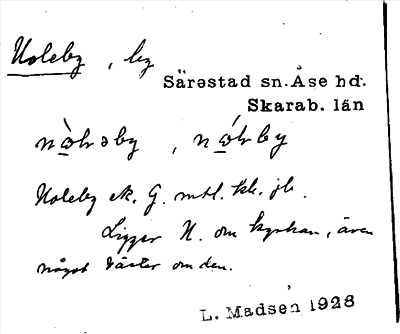 Holeby, by
Särestad sn. Åse hd.
Skarab. län
Holeby ek. G. mtl. kr. jb.
Ligger N. om kyrkan, även
något väster om den.
L. Madsen 1928